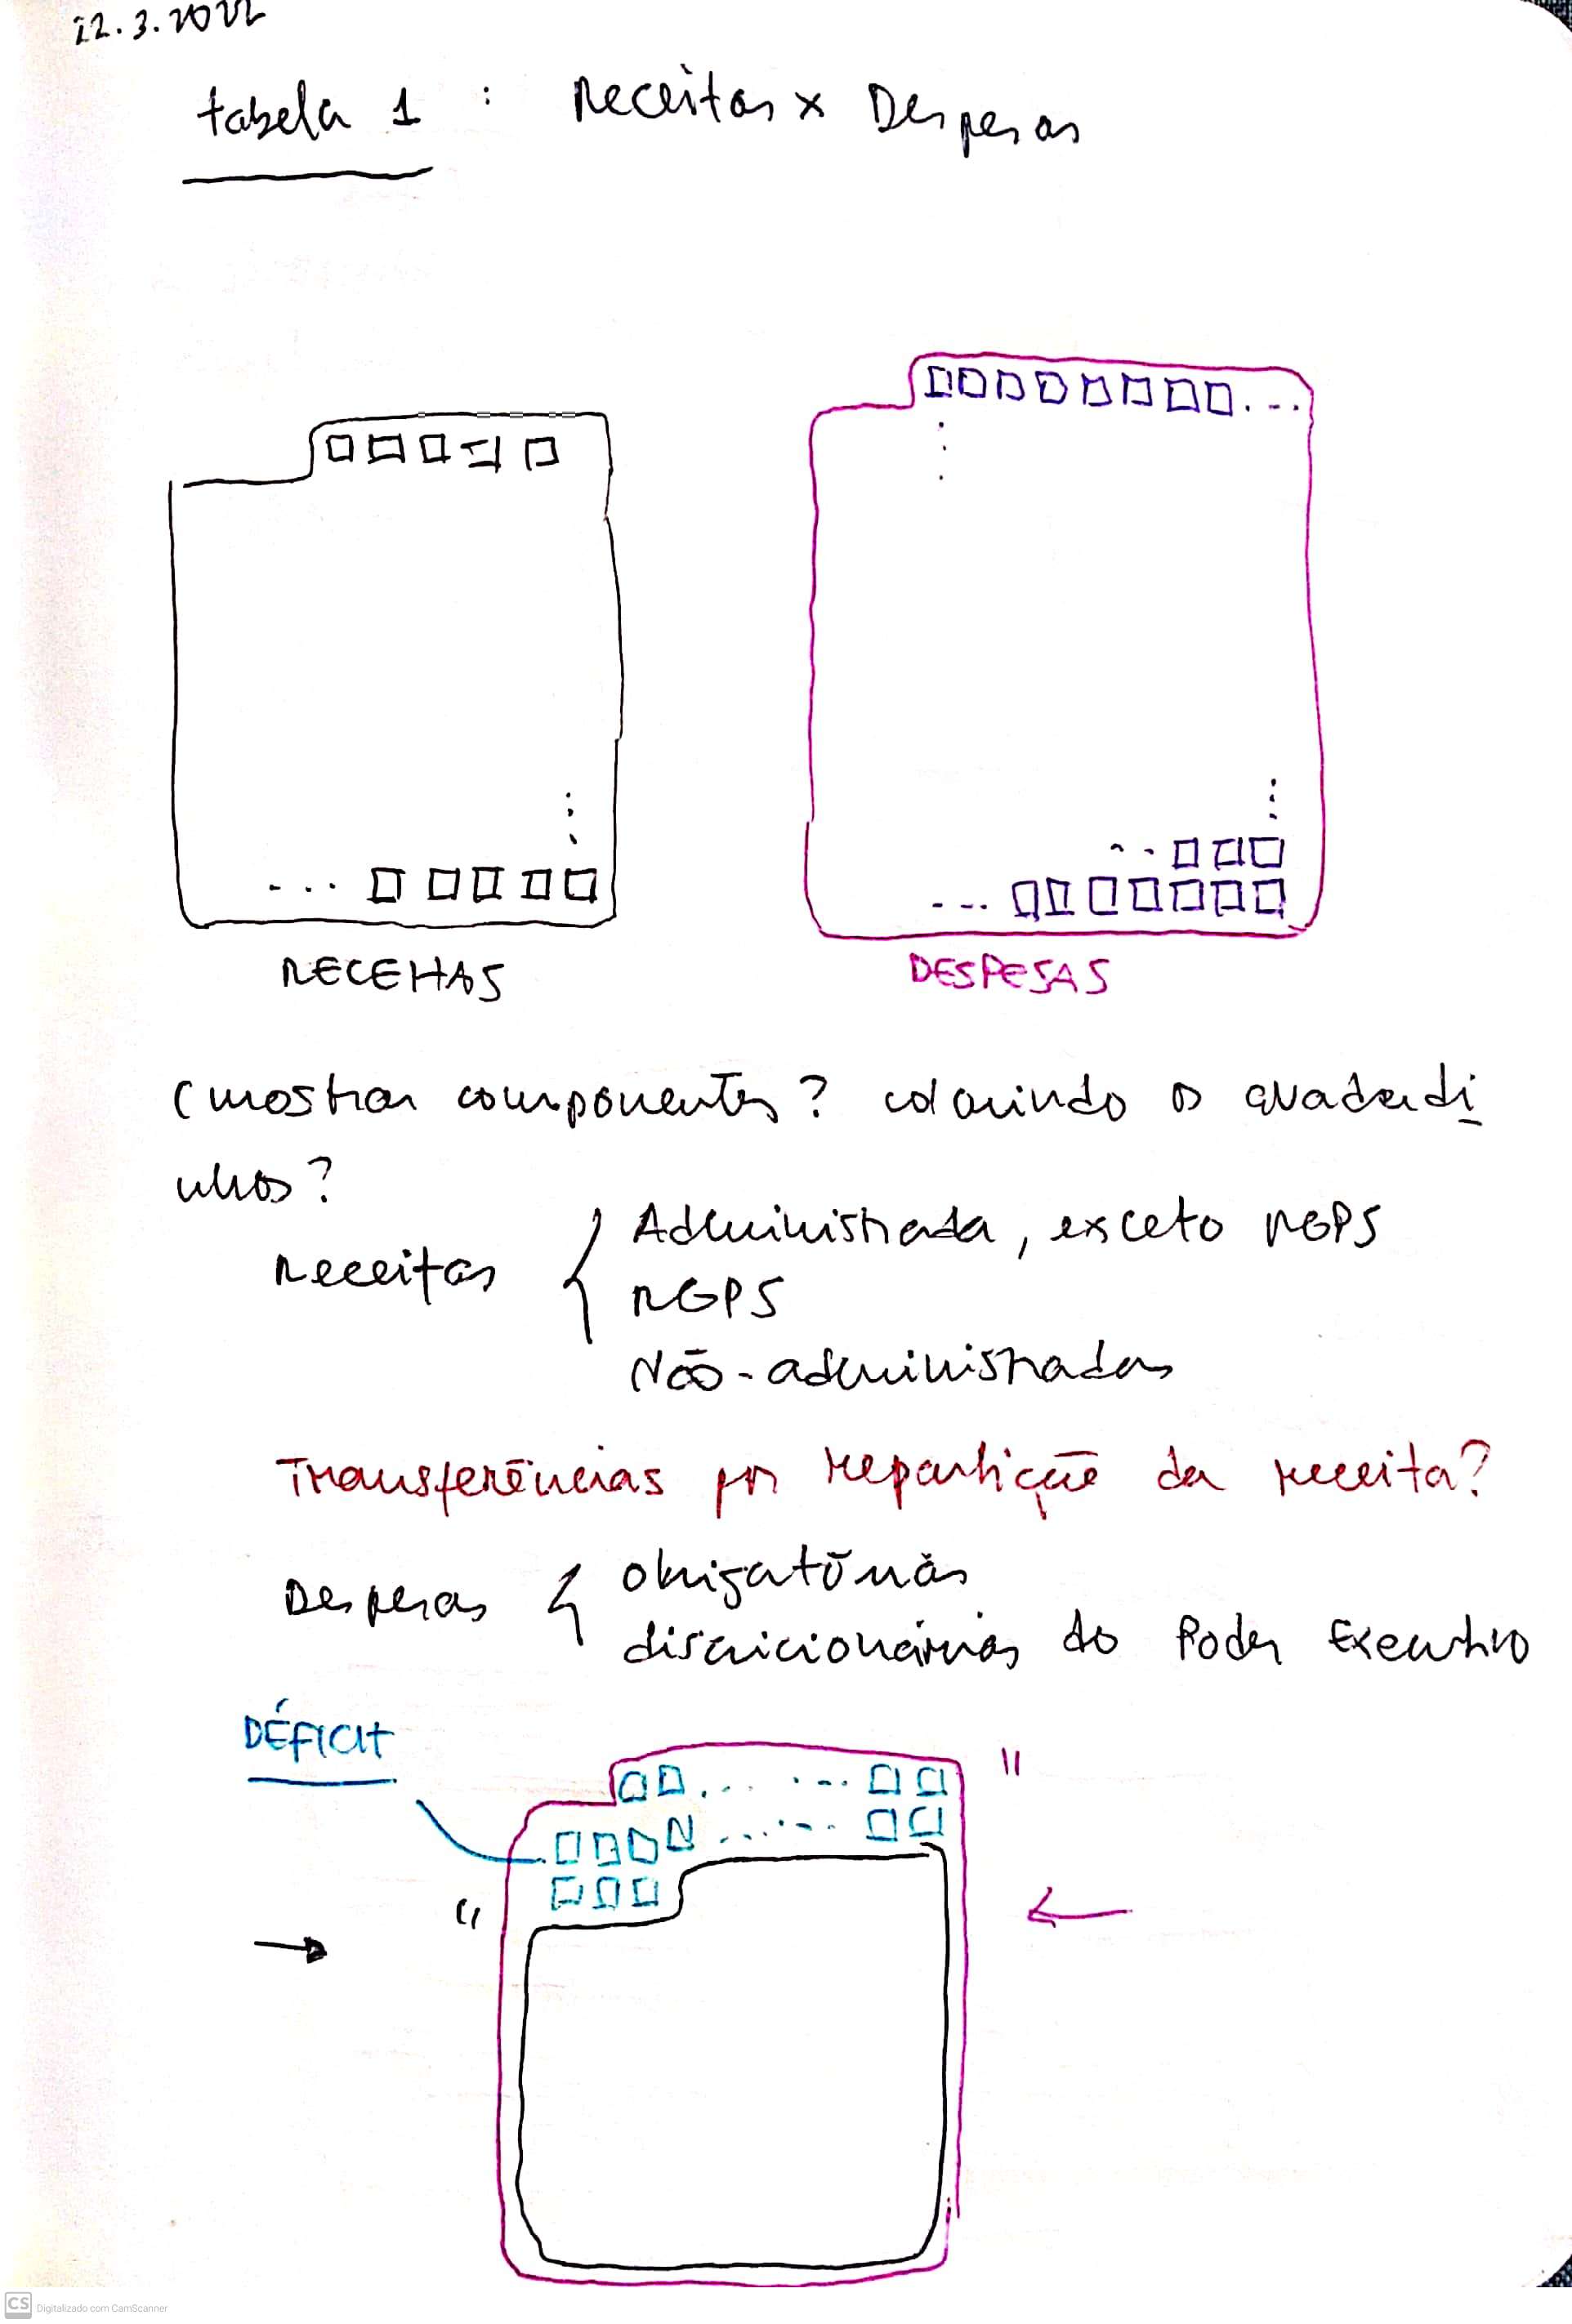 22.3.2022
tabela 1 : Receitas x Despesas
RECEITAS
DESPESAS
(mostrar componentes? colorindo os quadradi
nhos?
Receitas { Administrada, exceto RGPS
RGPS
Não-administradas
Transferências por repartição da receita?
Despesas { obrigatórias
discricionárias do Poder Executivo
DÉFICIT
CS Digitalizado com CamScanner